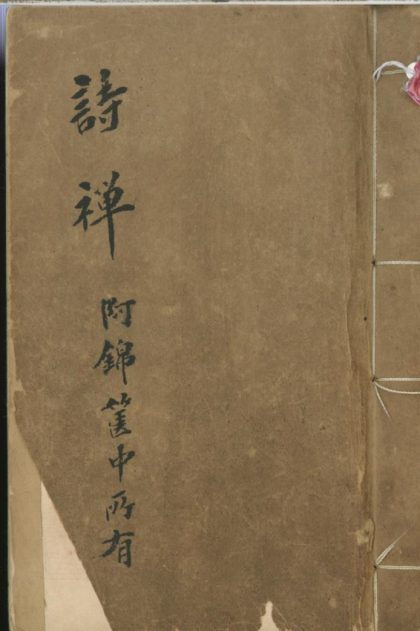 詩禅
阿錦篋中所有